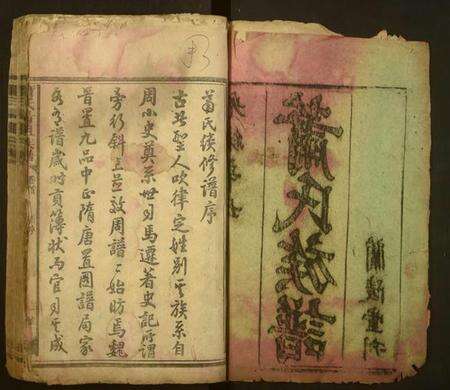 蕭氏族譜
蘭陵堂刊
蕭氏續修譜序
古者聖人吹律定姓別其族系自
周小史奠系世司馬遷著史記所謂
旁行斜上並效周譜〻始昉焉魏
晉置九品中正隋唐置圖譜局家
各有譜歲時貢簿狀於官司其成